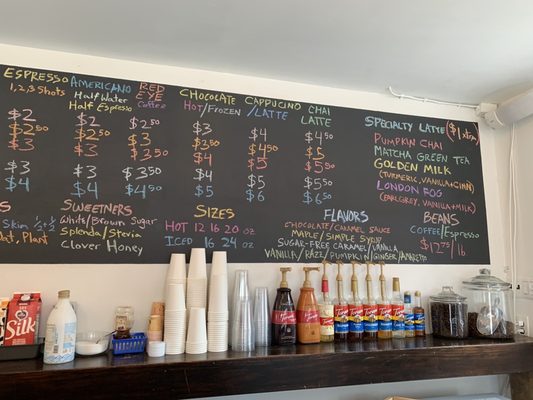 ESPRESSO
1, 2, 3 Shots
$2
$2.50
$3
$3
$4
AMERICANO
Half Water
Half Espresso
$2
$2.50
$3
$3
$4
RED
EYE
Coffee
$2.50
$3
$3.50
$3.50
$4.50
CHOCOLATE
Hot/Frozen
$3
$3.50
$4
$4
$5
CAPPUCINO
/LATTE
$4
$4.50
$5
$5
$6
CHAI
LATTE
$4.50
$5
$5.50
$5.50
$6.50
SPECIALTY LATTE
PUMPKIN CHAI
MATCHA GREEN TEA
GOLDEN MILK
(TURMERIC, VANILLA + CINN)
LONDON FOG
(EARL GREY, VANILLA + MILK)
Skim
Oat, Plant
SWEETNERS
White/Brown Sugar
Splenda/Stevia
Clover Honey
SIZES
HOT 12 16 20 oz
ICED 16 24 oz
FLAVORS
CHOCOLATE/CARAMEL SAUCE
MAPLE/SIMPLE SYRUP
SUGAR-FREE CARAMEL/VANILLA
VANILLA/RAZZ/PUMPKIN/GINGER/AMARETTO
BEANS
Coffee/Espresso
$12.75/lb
Silk
Torani